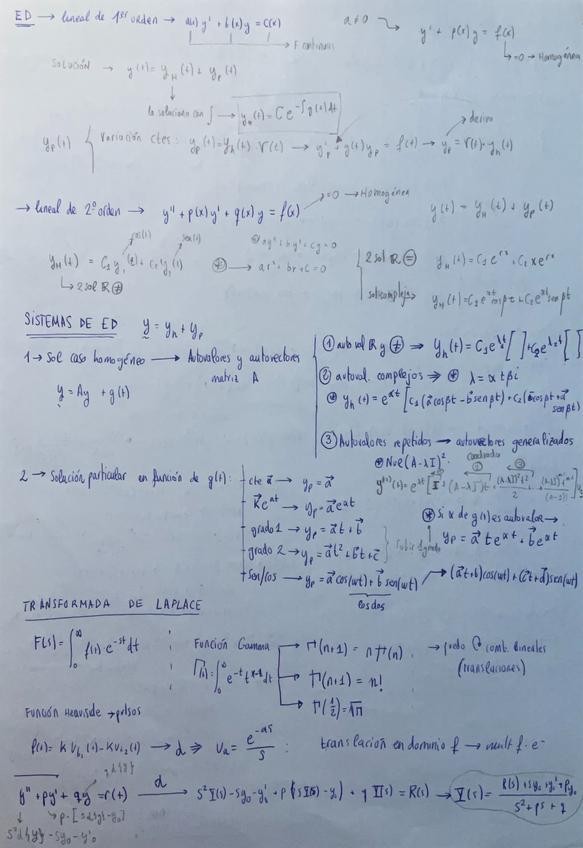 ED → lineal de 1er orden → a(x) y' + b(x) y = c(x)
a ≠ 0
y' + p(x) y = f(x)
→ F continuas
=0 → Homogénea
SOLUCIÓN → y(t) = y_H(t) + y_p(t)
la soluciono con ∫ → y_H(t) = C e^{-∫g(x)dt}
→ deriva
y_p(t) { Variación ctes: y_p(t) = y_h(t) · V(t) → y'_p + g(t) y_p = f(t) → y_p = V(t) · y_h(t)
→ lineal de 2º orden → y'' + p(x) y' + q(x) y = f(x)
=0 → Homogénea
y(t) = y_H(t) + y_p(t)
⊛ ay'' + by' + cy = 0
y_H(t) = C_1 y_1(t) + C_2 y_2(t)
→ 2 sol ℝ ≠
⊛ → ar² + br + c = 0
2 sol ℝ = y_H(t) = C_1 e^{rx} + C_2 x e^{rx}
sol complejas → y_H(t) = C_1 e^{αt} cos βt + C_2 e^{αt} sen βt
SISTEMAS DE ED y = y_h + y_p
1 → Sol caso homogéneo → Autovalores y autovectores
matriz A
y = Ay + g(t)
① autoval ℝ y ≠ ⇒ y_h(t) = C_1 e^{λ_1 t} [ ] + C_2 e^{λ_2 t} [ ]
② autoval. complejos ⇒ ⊛ λ = α ± βi
⊛ y_h(t) = e^{αt} [c_1 (a⃗ cos βt - b⃗ sen βt) + c_2 (b⃗ cos βt + a⃗ sen βt)
③ Autovalores repetidos → autovectores generalizados
⊛ Nuc(A-λI)²
2 → Solución particular en función de g(t):
cte a⃗ → y_p = a⃗
K⃗e^{at} → y_p = a⃗e^{at}
grado 1 → y_p = a⃗t + b⃗
grado 2 → y_p = a⃗t² + b⃗t + c⃗
subir 1 grado
⊛ Si α de g(t) es autovalor →
y_p = a⃗ t e^{αt} + b⃗ e^{αt}
sen/cos → y_p = a⃗ cos(wt) + b⃗ sen(wt) → (a⃗t+b) cos(wt) + (c⃗t+d⃗) sen(wt)
los dos
TRANSFORMADA DE LAPLACE
F(s) = ∫_0^∞ f(t) · e^{-st} dt
Función Gamma
Γ(x) = ∫_0^∞ e^{-t} t^{x-1} dt
Γ(n+1) = n Γ(n)
Γ(n+1) = n!
Γ(1/2) = √π
→ puedo comb. lineales
(translaciones)
Función Heaviside → pulsos
f(t) = K U_{t_1}(t) - K U_{t_2}(t) → L ⇒ U_a = e^{-as}/s : translación en dominio f → mult f · e^-
y'' + py' + qy = r(t) —L→ s² Y(s) - sy_0 - y'_0 + p(sY(s) - y_0) + q Y(s) = R(s) → Y(s) = (R(s) + sy_0 + y'_0 + py_0)/(s² + ps + q)
→ p · [sL{y} - y_0]
s²L{y} - sy_0 - y'_0